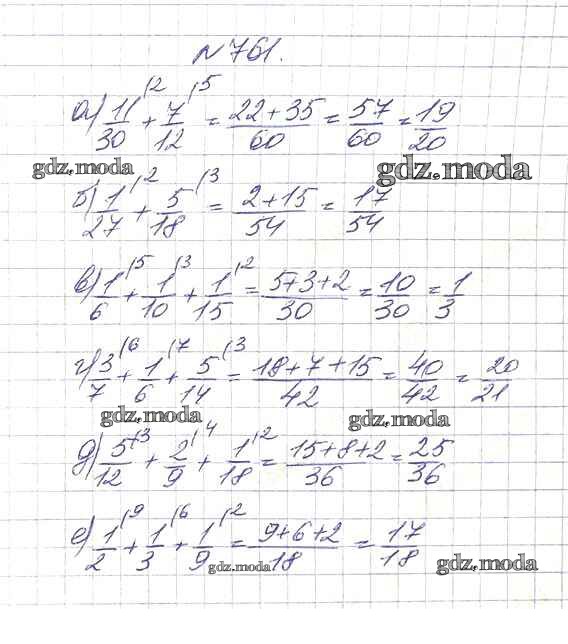 №761.
а) 11/30 (2 + 7/12 (5 = 22+35/60 = 57/60 = 19/20
gdz.moda gdz.moda
б) 1/27 (2 + 5/18 (3 = 2+15/54 = 17/54
в) 1/6 (5 + 1/10 (3 + 1/15 (2 = 5+3+2/30 = 10/30 = 1/3
г) 3/7 (6 + 1/6 (7 + 5/14 (3 = 18+7+15/42 = 40/42 = 20/21
gdz.moda gdz.moda
д) 5/12 (3 + 2/9 (4 + 1/18 (2 = 15+8+2/36 = 25/36
е) 1/2 (9 + 1/3 (6 + 1/9 (2 = 9+6+2/18 = 17/18
gdz.moda gdz.moda